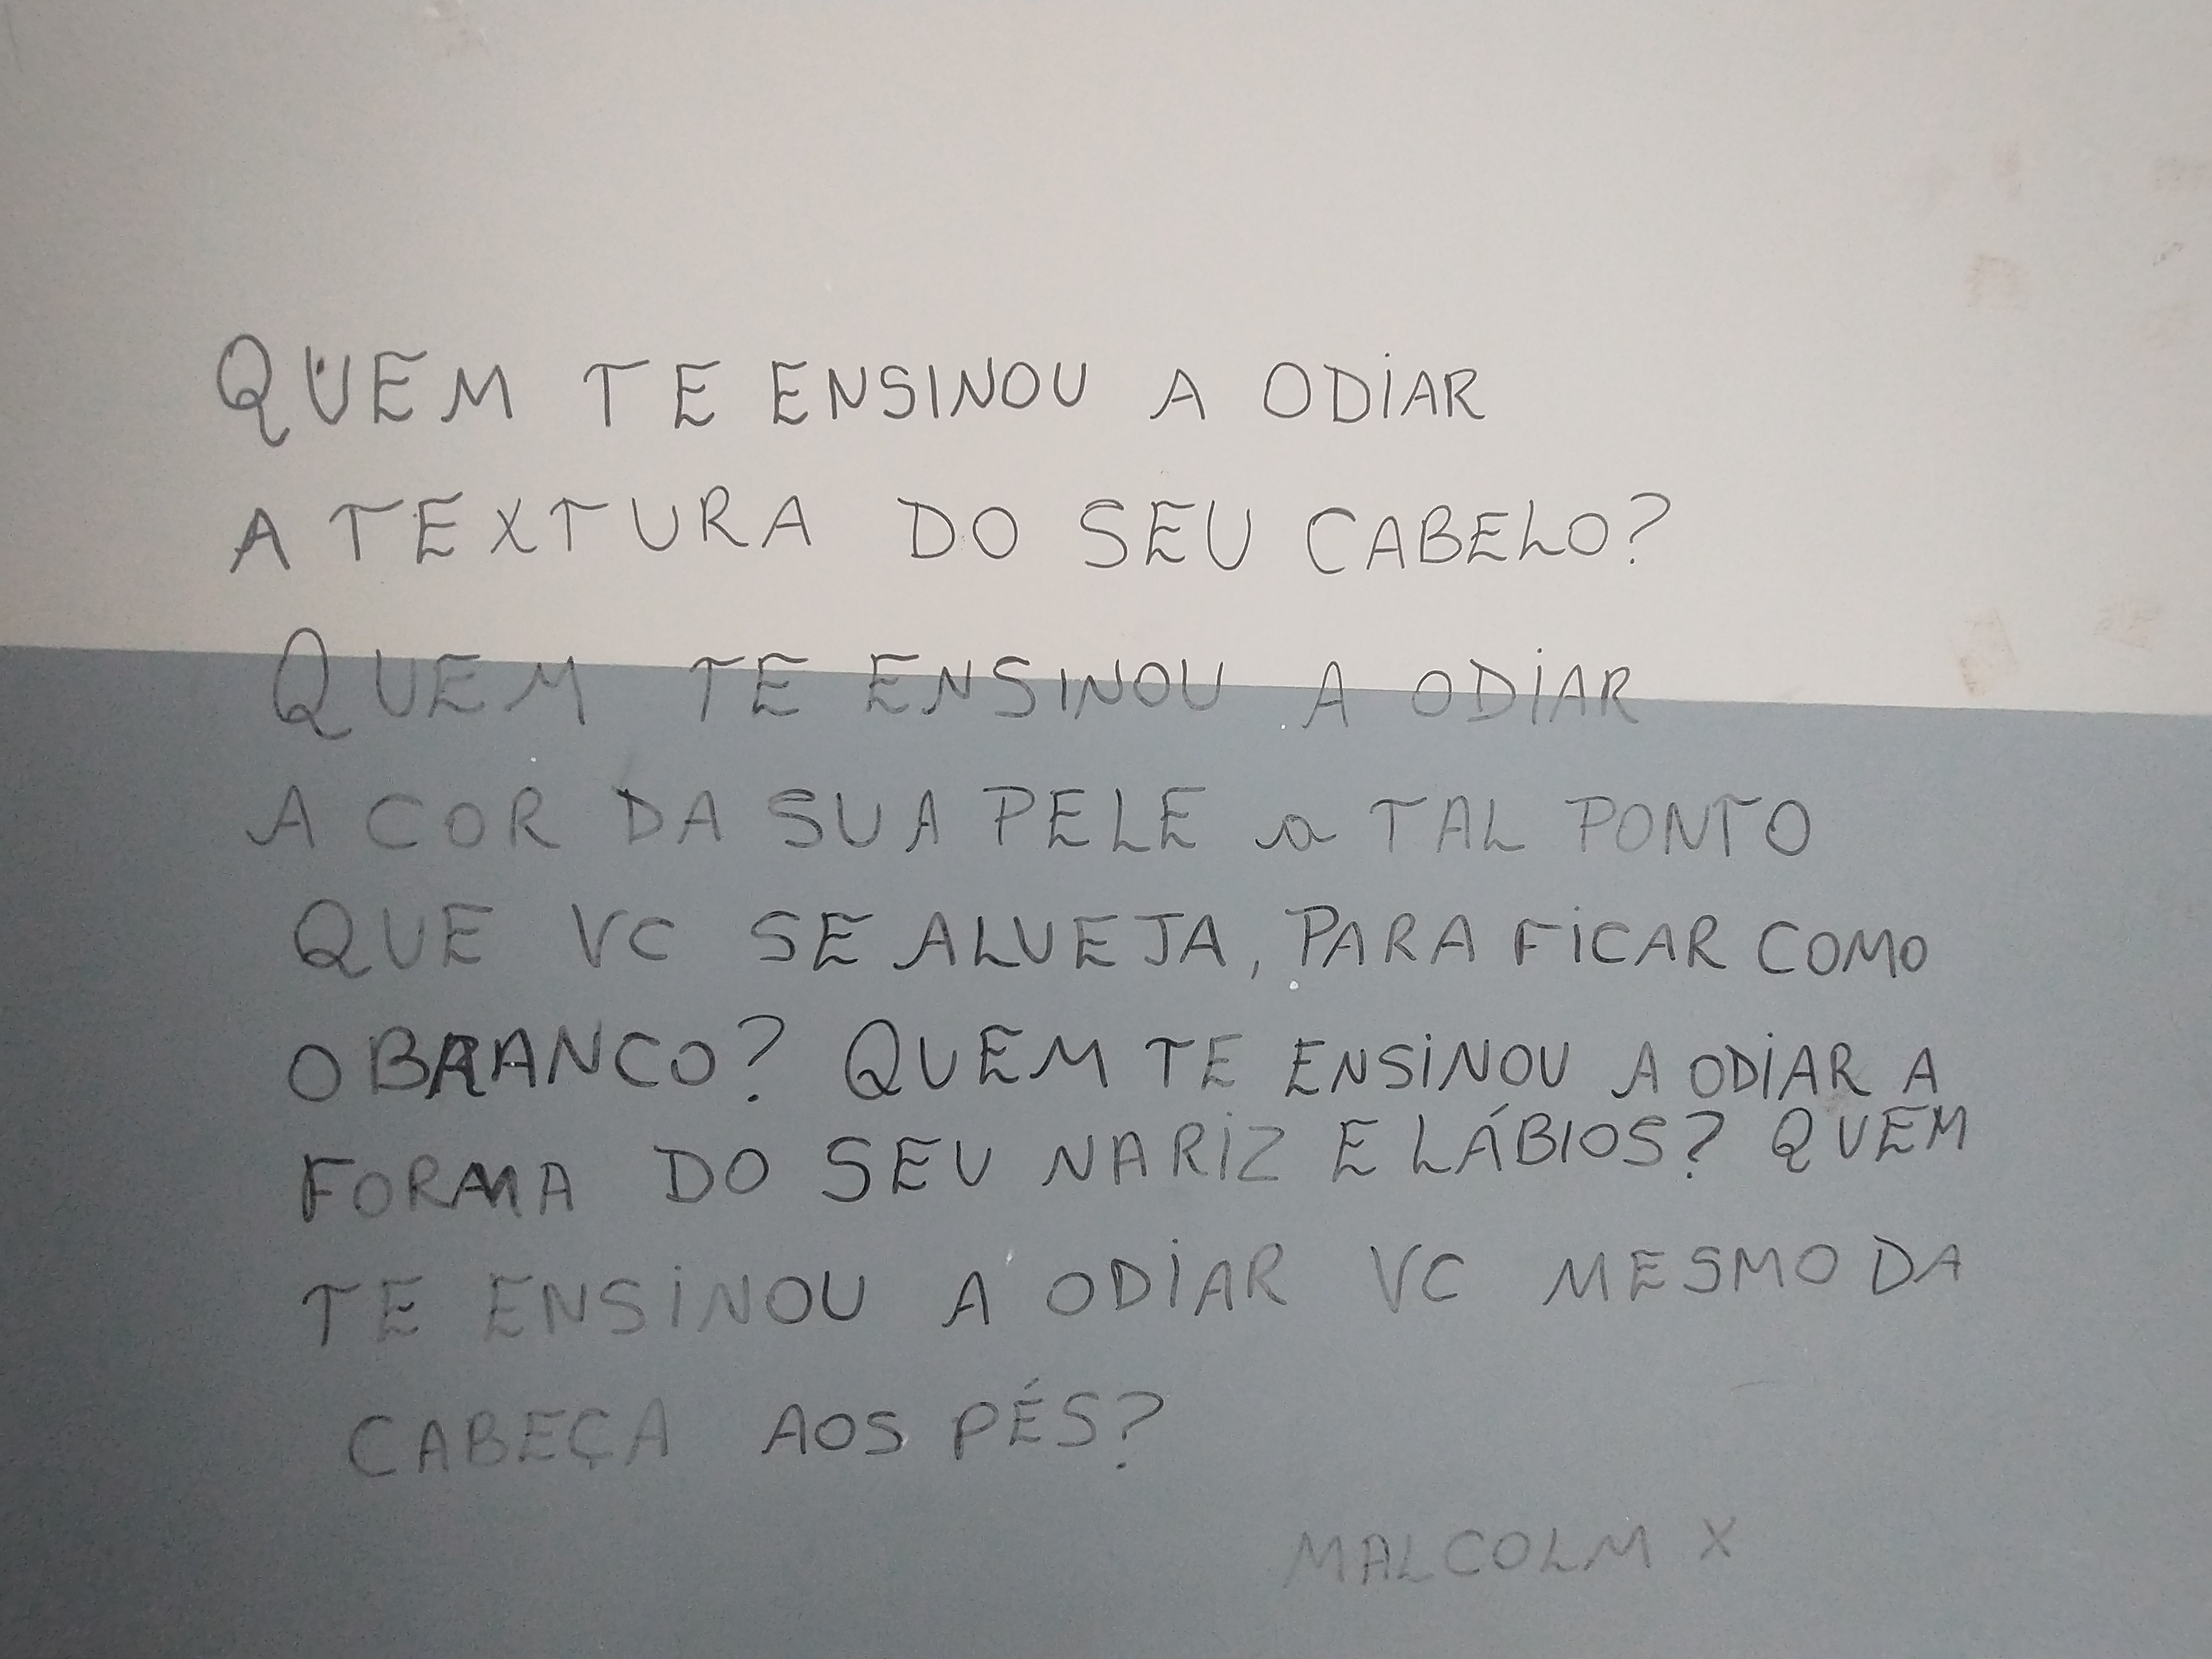 QUEM TE ENSINOU A ODIAR
A TEXTURA DO SEU CABELO?
QUEM TE ENSINOU A ODIAR
A COR DA SUA PELE a TAL PONTO
QUE VC SE ALVEJA, PARA FICAR COMO
O BRANCO? QUEM TE ENSINOU A ODIAR A
FORMA DO SEU NARIZ E LÁBIOS? QUEM
TE ENSINOU A ODIAR VC MESMO DA
CABEÇA AOS PÉS?
MALCOLM X